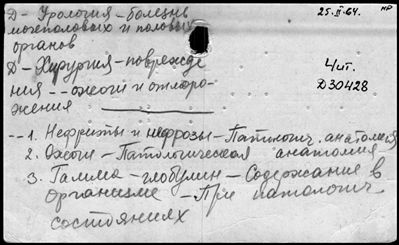 Д – Урология – болезнь
мочеполовых и половых
органов
Д – Хирургия – поврежде
ния -- ожоги и отморо-
жения
25.II-64.
МР
Чит.
D30428
-- 1. Нефриты и нефрозы – Патологич. анатомия
2. Ожоги – Патологическая анатомия
3. Гамма – глобулин – Содержание в
организме – При патологич.
состояниях